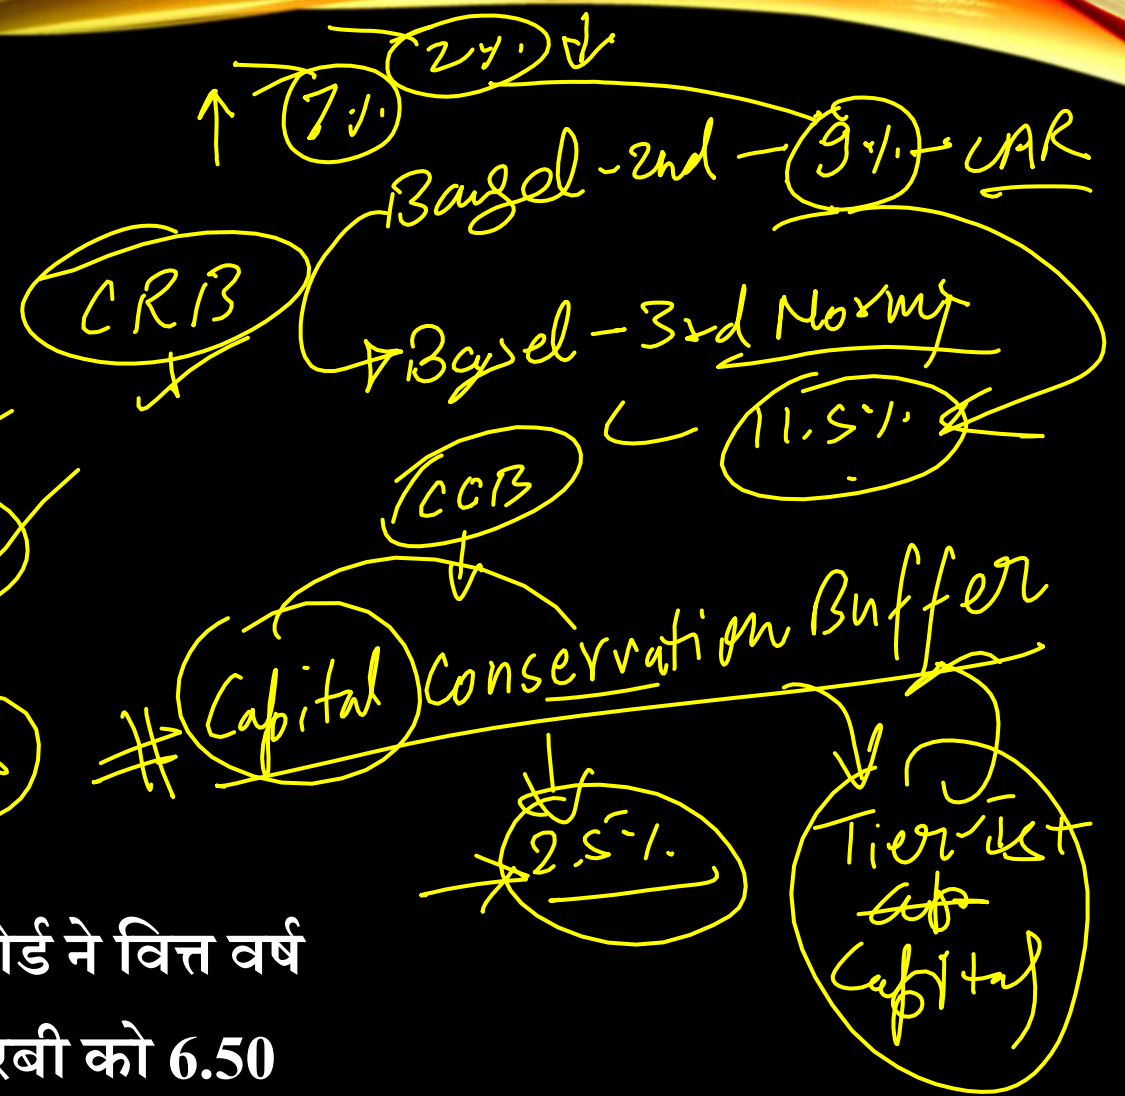 2%
7%
Baysel-2nd - 9% - CAR
CRB
Baysel-3rd Norms
11.5%
CCB
# Capital Conservation Buffer
2.5%
Tier-Ist
Capital
ोर्ड ने वित्त वर्ष
रबी को 6.50